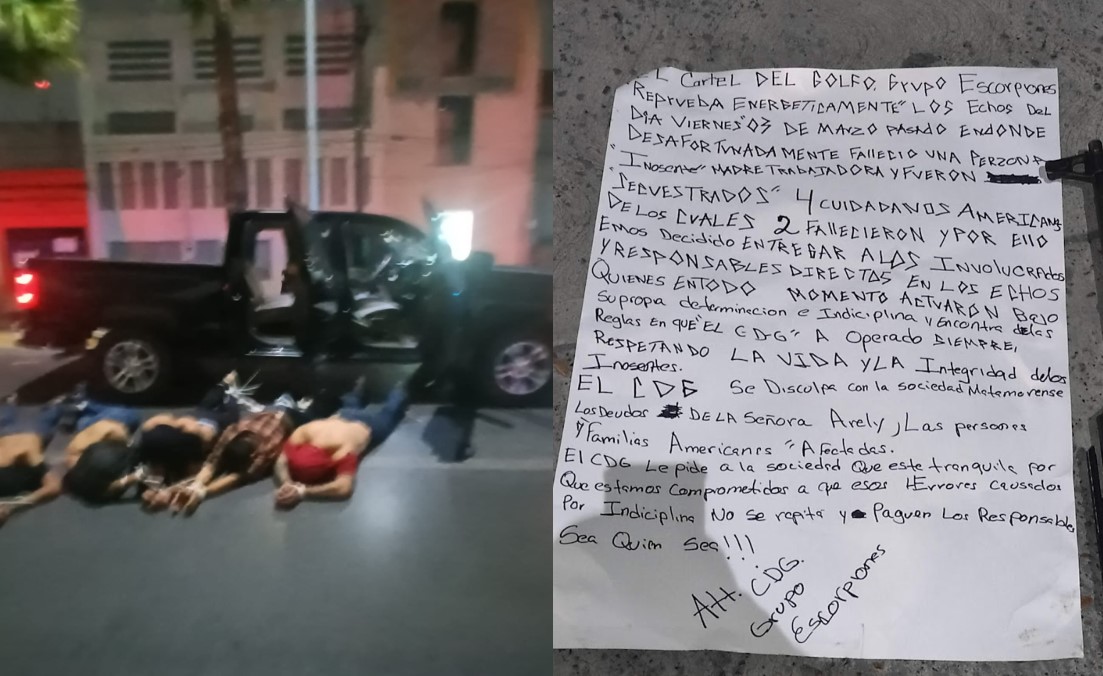 EL Cartel DEL GOLFO. Grupo Escorpiones
REPRUEBA ENERGETICAMENTE" LOS Echos DEL
DIA VIERNES "03 DE MARZO PASADO ENDONDE
DESAFORTUNADAMENTE FALLECIO UNA PERZONA
"Inosente" MADRE TRABAJADORA Y FUERON
SECUESTRADOS" 4 CUIDADANOS AMERICANS
DE LOS CUALES 2 FALLECIERON Y POR ELLO
EMOS DECIDIDO ENTREGAR A LOS INVOLUCRADOS
Y RESPONSABLES DIRECTOS EN LOS ECHOS
QUIENES ENTODO MOMENTO ACTUARON BAJO
Su propia determinacion e Indiciplina y Encontra delas
Reglas EN QUE "EL CDG" A Operado SIEMPRE,
RESPETANDO LA VIDA Y LA Integridad delos
Inosentes.
EL CDG Se Disculpa con la sociedad Matamorense
Los Deudos DE LA Señora Arely, Las personas
Y Familias Americanas "Afectadas.
El CDG Le pide a la sociedad Que este tranquila por
Que estamos Comprometidos a que esos Errores Causados
Por Indiciplina No se repita y Paguen Los Responsables
Sea Quien Sea!!!
Att. CDG.
Grupo
Escorpiones